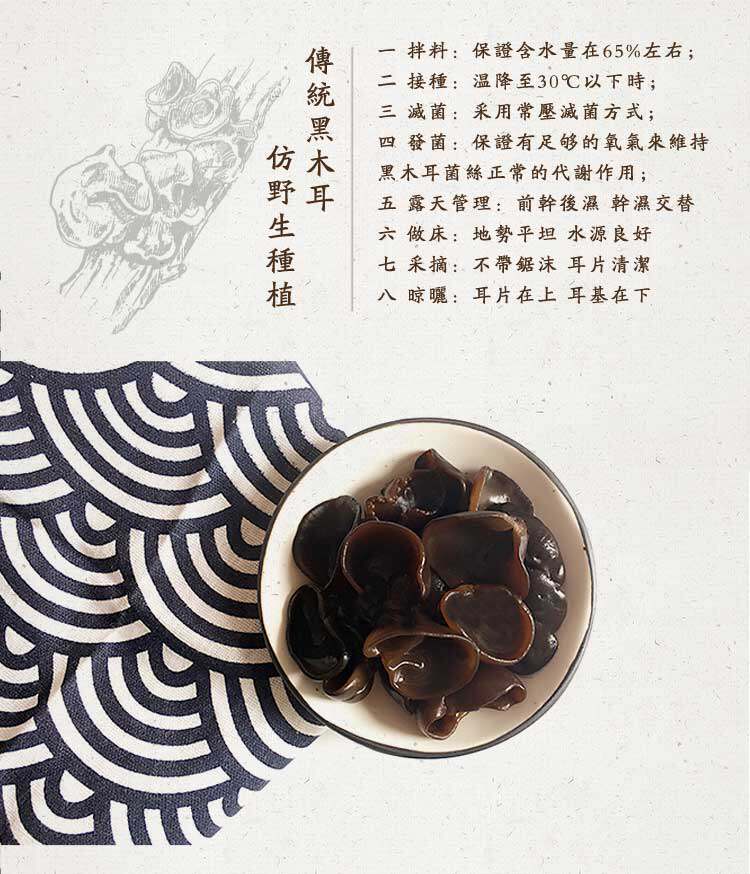 傳統黑木耳
仿野生種植
一 拌料：保證含水量在65%左右；
二 接種：温降至30℃以下時；
三 滅菌：采用常壓滅菌方式；
四 發菌：保證有足够的氧氣來維持
黑木耳菌絲正常的代謝作用；
五 露天管理：前幹後濕 幹濕交替
六 做床：地勢平坦 水源良好
七 采摘：不帶鋸沫 耳片清潔
八 晾曬：耳片在上 耳基在下